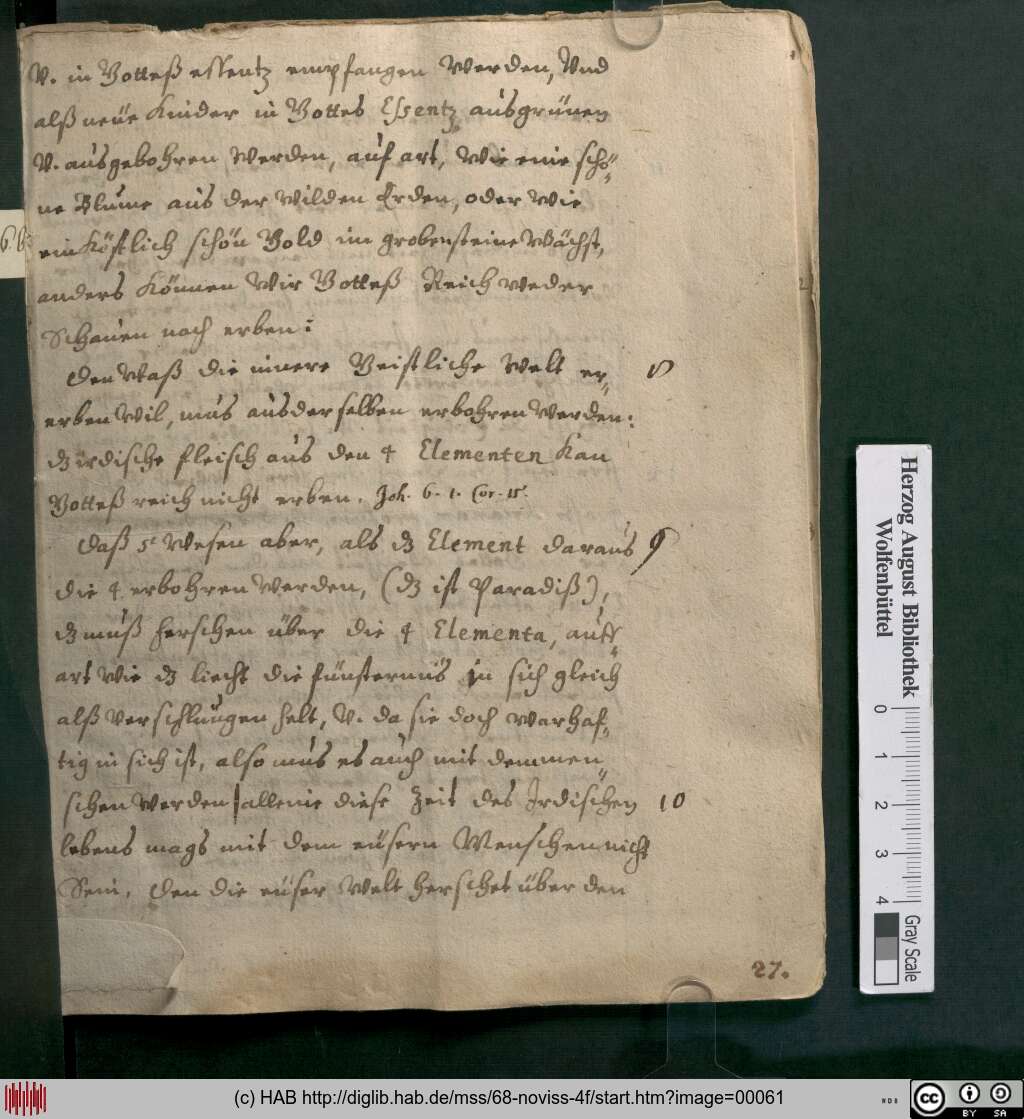 V. in Gotteß essentz empfangen werden, Vnd
alß neüe Kinder in Gottes Essentz ausgrünen
V. ausgebohren werden, auf art, wie eine schö-
ne Blume aus der wilden Erden, oder wie
ein Köstlich schön Gold im grobensteine Wächst,
anders Können wir Gotteß Reich weder
Schauen noch erben:
den Waß die innere Geistliche Welt er- 8
erben wil, mus aus derselben erbohren werden:
dz irdische fleisch aus den 4 Elementen Kan
Gotteß reich nicht erben. Joh. 6. 1. Cor. 15.
daß 5te Wesen aber, als dz Element daraus 9
die 4 erbohren werden, (dz ist Paradiß),
dz muß herschen über die 4 Elementa, auff
art wie dz liecht die finsternüs in sich gleich
alß verschlungen helt, V. da sie doch warhaf-
tig in sich ist, also mus es auch mit dem men-
schen werden allenie diese Zeit des Irdischen 10
lebens mags mit dem eüsern Menschen nicht
Sein, den die eüser Welt herschet über den
27.
Herzog August Bibliothek
Wolfenbüttel
0 1 2 3 4
Gray Scale
(c) HAB http://diglib.hab.de/mss/68-noviss-4f/start.htm?image=00061
cc BY SA